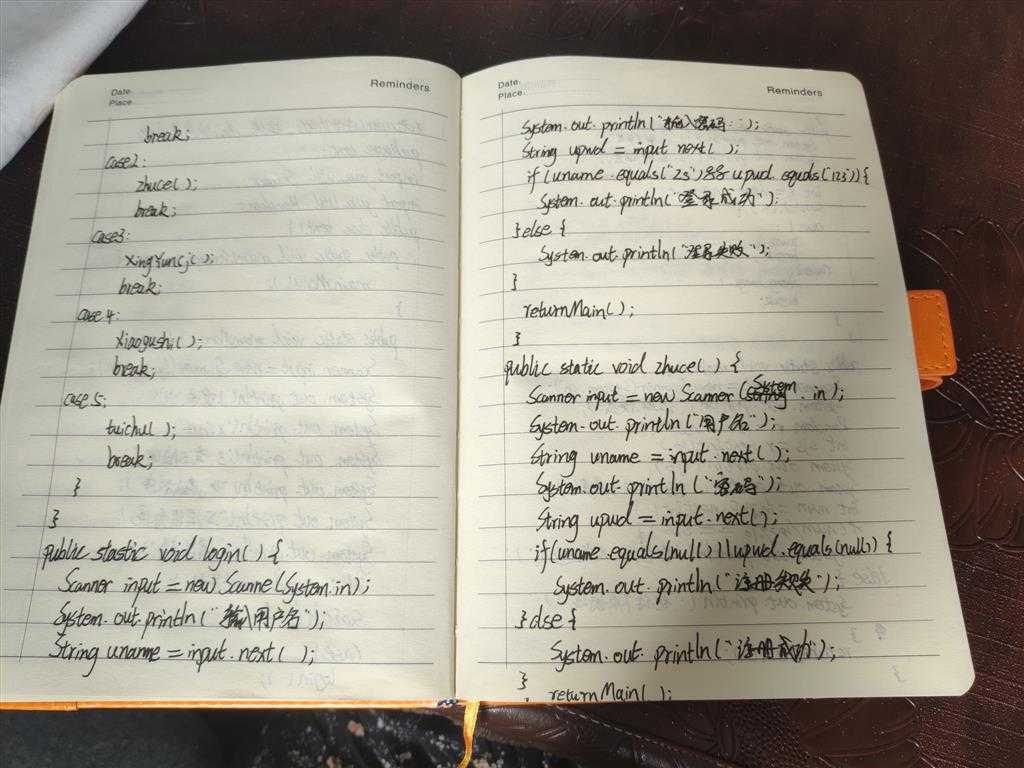 Date:
Place:
Reminders
break;
case2:
zhuce();
break;
case3:
xingyuncj();
break;
case4:
xiaogushi();
break;
case5:
tuichu();
break;
}
}
public stastic void login() {
Scanner input = new Scanne(System.in);
System.out.println("输入用户名");
String uname = input.next( );
Date:
Place:
Reminders
System.out.println("输入密码:");
String upwd = input next( );
if(uname.equals("zs")&& upwd.equals("123")){
System.out.println("登录成功");
}else {
System.out.println("登录失败");
}
returnMain();
}
public static void zhuce() {
Scanner input = new Scanner(System.in);
System.out.println("用户名");
String uname = input.next( );
System.out.println("密码");
String upwd = input.next();
if(uname.equals(null)||upwd.equals(null)) {
System.out.println("注册失败");
}else {
System.out.println("注册成功");
}
returnMain( );